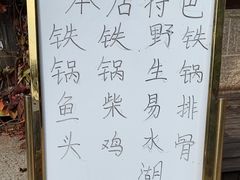 本店特色
铁锅鱼头
铁锅柴鸡
野生易水湖
铁锅排骨